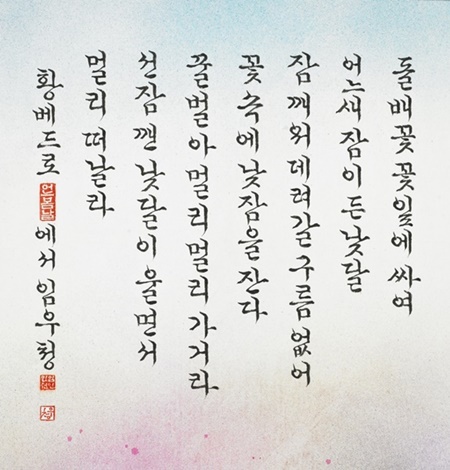 돌배꽃 꽃잎에 싸여
어느새 잠이 든 낮달
잠 깨워 데려갈 구름 없어
꽃 속에 낮잠을 잔다
꿀벌아 멀리멀리 가거라
선잠 깬 낮달이 울면서
멀리 떠날라
황베드로 에서 임우청